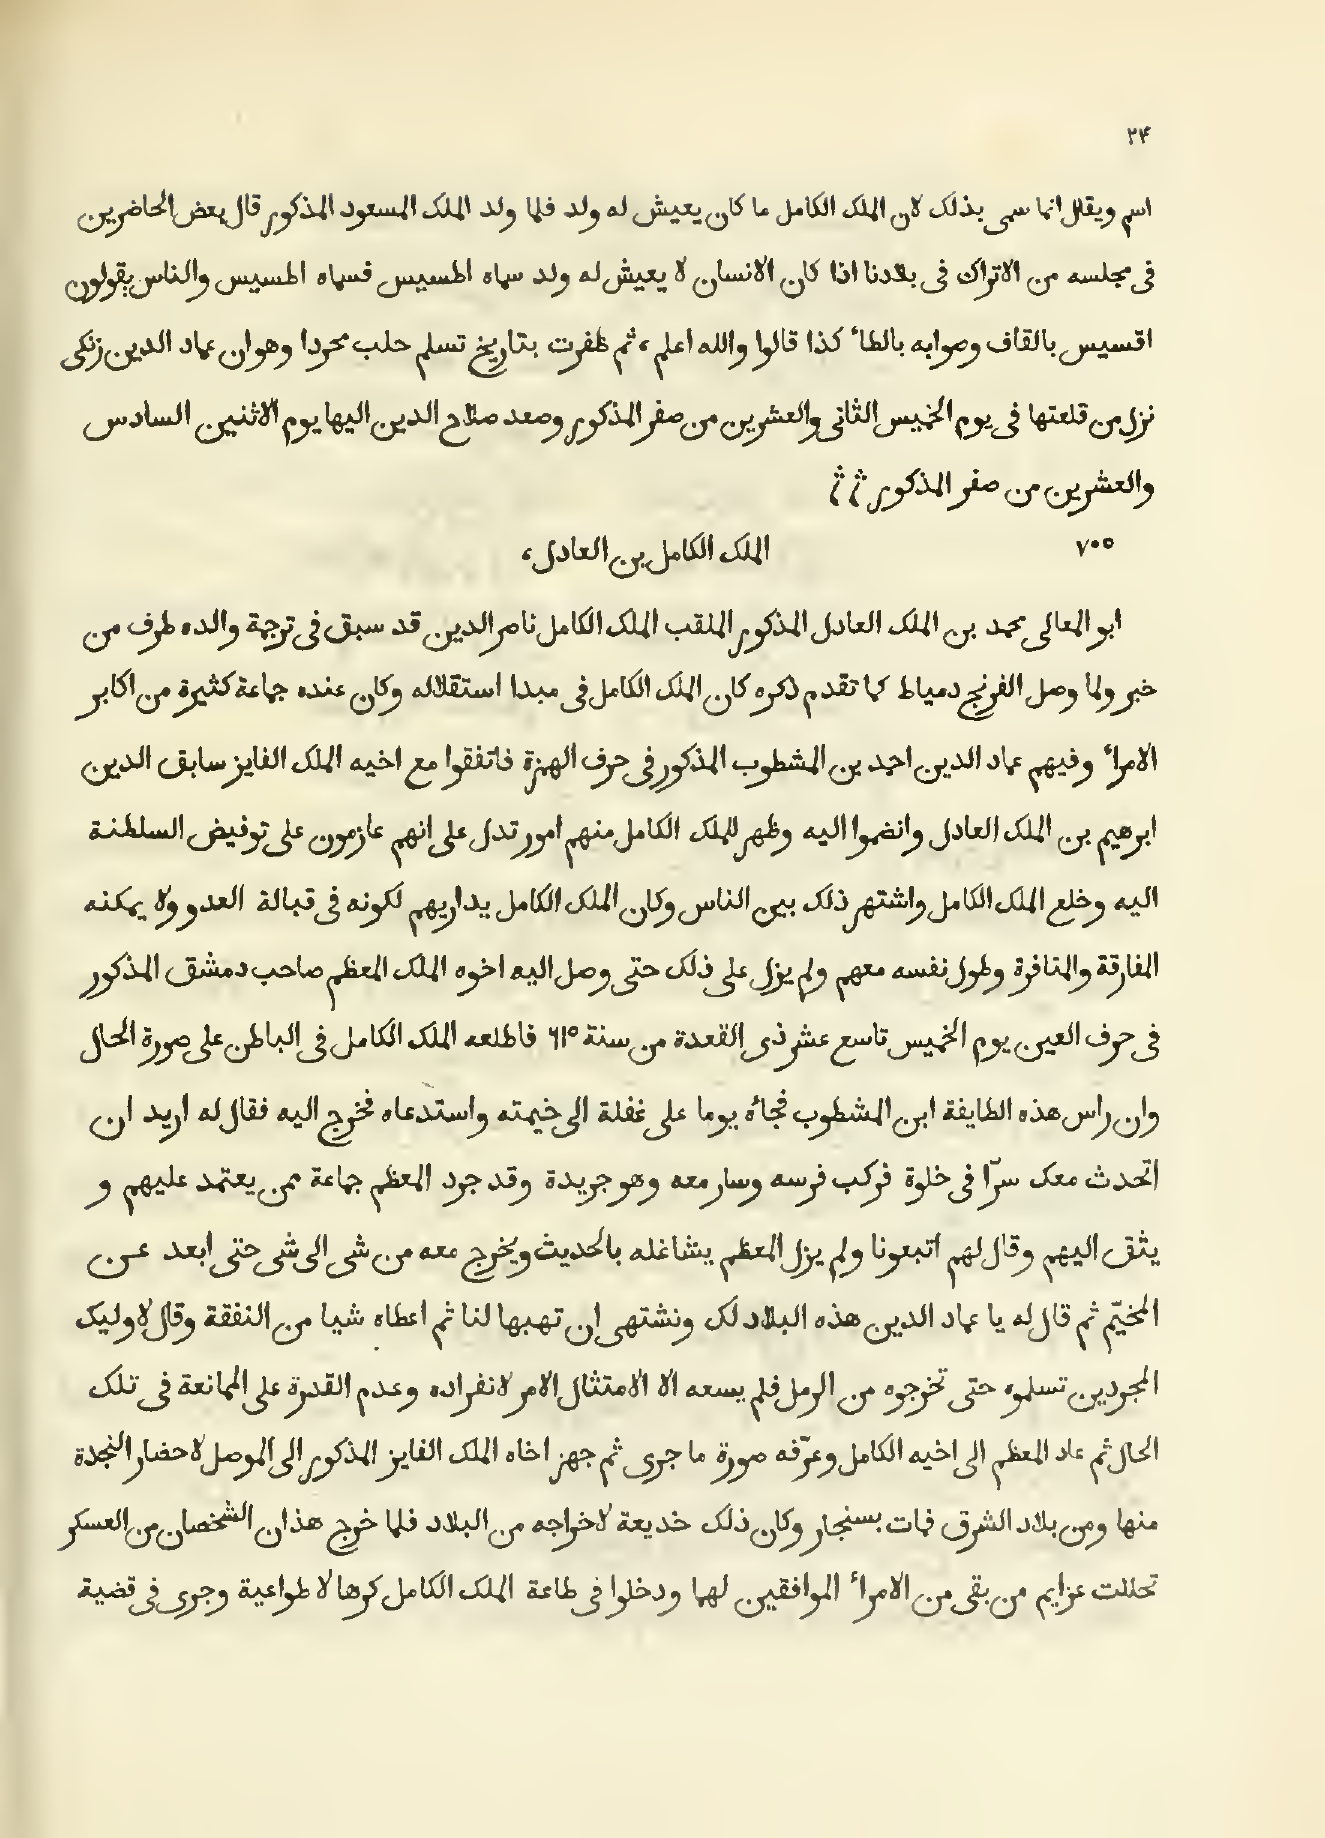 ٢٤
اسم ويقال انما سمى بذلك لان الملك الكامل ما كان يعيش له ولد فلما ولد الملك المسعود المذكور قال بعض الحاضرين
فى مجلسه من الاتراك فى بلادنا اذا كان الانسان لا يعيش له ولد سماه اطسيس فسماه اطسيس والناس يقولون
اقسيس بالقاف وصوابه بالطاء كذا قالوا والله اعلم، ثم ظفرت بتاريخ تسلم حلب محررا وهو ان عماد الدين زنكى
نزل من قلعتها فى يوم الخميس الثانى والعشرين من صفر المذكور وصعد صلاح الدين اليها يوم الاثنين السادس
والعشرين من صفر المذكور ؞ ؞
٧٠٥ الملك الكامل بن العادل،
ابو المعالى محمد بن الملك العادل المذكور الملقب الملك الكامل ناصر الدين قد سبق فى ترجمة والده طرف من
خبر ولما وصل الفرنج دمياط كما تقدم ذكره كان الملك الكامل فى مبدا استقلاله وكان عنده جماعة كثيرة من اكابر
الامراء وفيهم عماد الدين احمد بن المشطوب المذكور فى حرف الهمزة فاتفقوا مع اخيه الملك الفايز سابق الدين
ابرهيم بن الملك العادل وانضموا اليه وظهر للملك الكامل منهم امور تدل على انهم عازمون على توفيض السلطنة
اليه وخلع الملك الكامل واشتهر ذلك بين الناس وكان الملك الكامل يداريهم لكونه فى قبالة العدو ولا يمكنه
المفارقة والمنافرة وطول نفسه معهم ولم يزل على ذلك حتى وصل اليه اخوه الملك المعظم صاحب دمشق المذكور
فى حرف العين يوم الخميس تاسع عشر ذى القعدة من سنة ٦١٥ فاطلعه الملك الكامل فى الباطن على صورة الحال
وان راس هذه الطايفة ابن المشطوب فجاءه يوما على غفلة الى خيمته واستدعاه فخرج اليه فقال له اريد ان
اتحدث معك سرّا فى خلوة فركب فرسه وسار معه وهو جريدة وقد جرد المعظم جماعة ممن يعتمد عليهم و
يثق اليهم وقال لهم اتبعونا ولم يزل المعظم يشاغله بالحديث ويخرج معه من شى الى شى حتى ابعد عن
المخيّم ثم قال له يا عماد الدين هذه البلاد لك ونشتهى ان تهبها لنا ثم اعطاه شيا من النفقة وقال لاوليك
المجردين تسلموه حتى تخرجوه من الرمل فلم يسعه الا الامتثال الامر لانفراده وعدم القدرة على الممانعة فى تلك
الحال ثم عاد المعظم الى اخيه الكامل وعرّفه صورة ما جرى ثم جهز اخاه الملك الفايز المذكور الى الموصل لاحضار النجدة
منها ومن بلاد الشرق فمات بسنجار وكان ذلك خديعة لاخراجه من البلاد فلما خرج هذان الشخصان من العسكر
تحللت عزايم من بقى من الامراء الموافقين لهما ودخلوا فى طاعة الملك الكامل كرها لا طواعية وجرى فى قضية